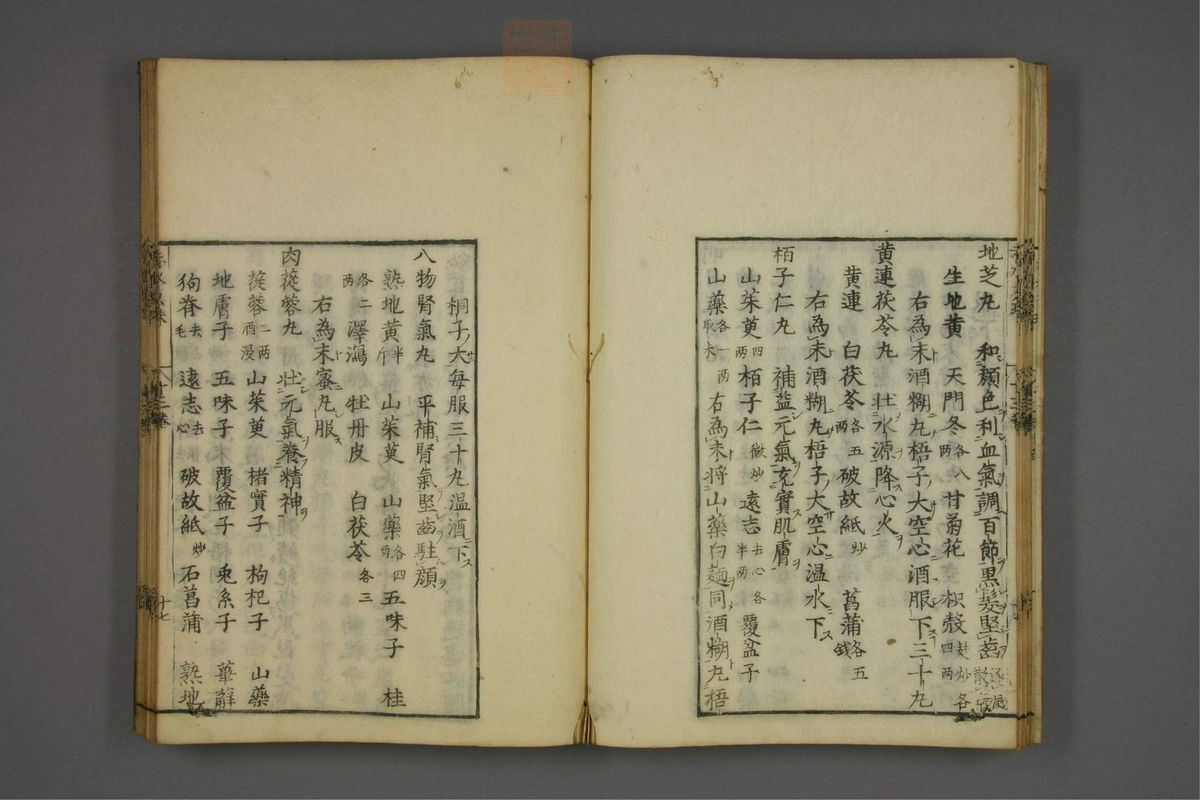 地芝丸 和顔色利血氣調百節黒髮堅齒逐風散氣
生地黄 天門冬各八两 甘菊花 枳殻麸炒各四两
右為末酒糊丸梧子大空心酒服下三十丸
黄連茯苓丸 壮水源降心火
黄連 白茯苓各五两 破故紙炒 菖蒲各五錢
右為末酒糊丸梧子大空心温水下
栢子仁丸 補益元氣充實肌膚
山茱萸四两 栢子仁微炒 遠志去心各半两 覆盆子
山藥各一两取末 右為末將山藥白麺同酒糊丸梧
桐子大每服三十丸温酒下
八物腎氣丸 平補腎氣堅齒駐顔
熟地黄半斤 山茱萸 山藥各四两 五味子 桂
各二两 澤瀉 牡丹皮 白茯苓各三
右為末蜜丸服
肉蓯蓉丸 壮元氣養精神
蓯蓉二两酒浸 山茱萸 楮實子 枸杞子 山藥
地膚子 五味子 覆盆子 兎糸子 萆薢
狗脊去毛 遠志去心 破故紙炒 石菖蒲 熟地
十七